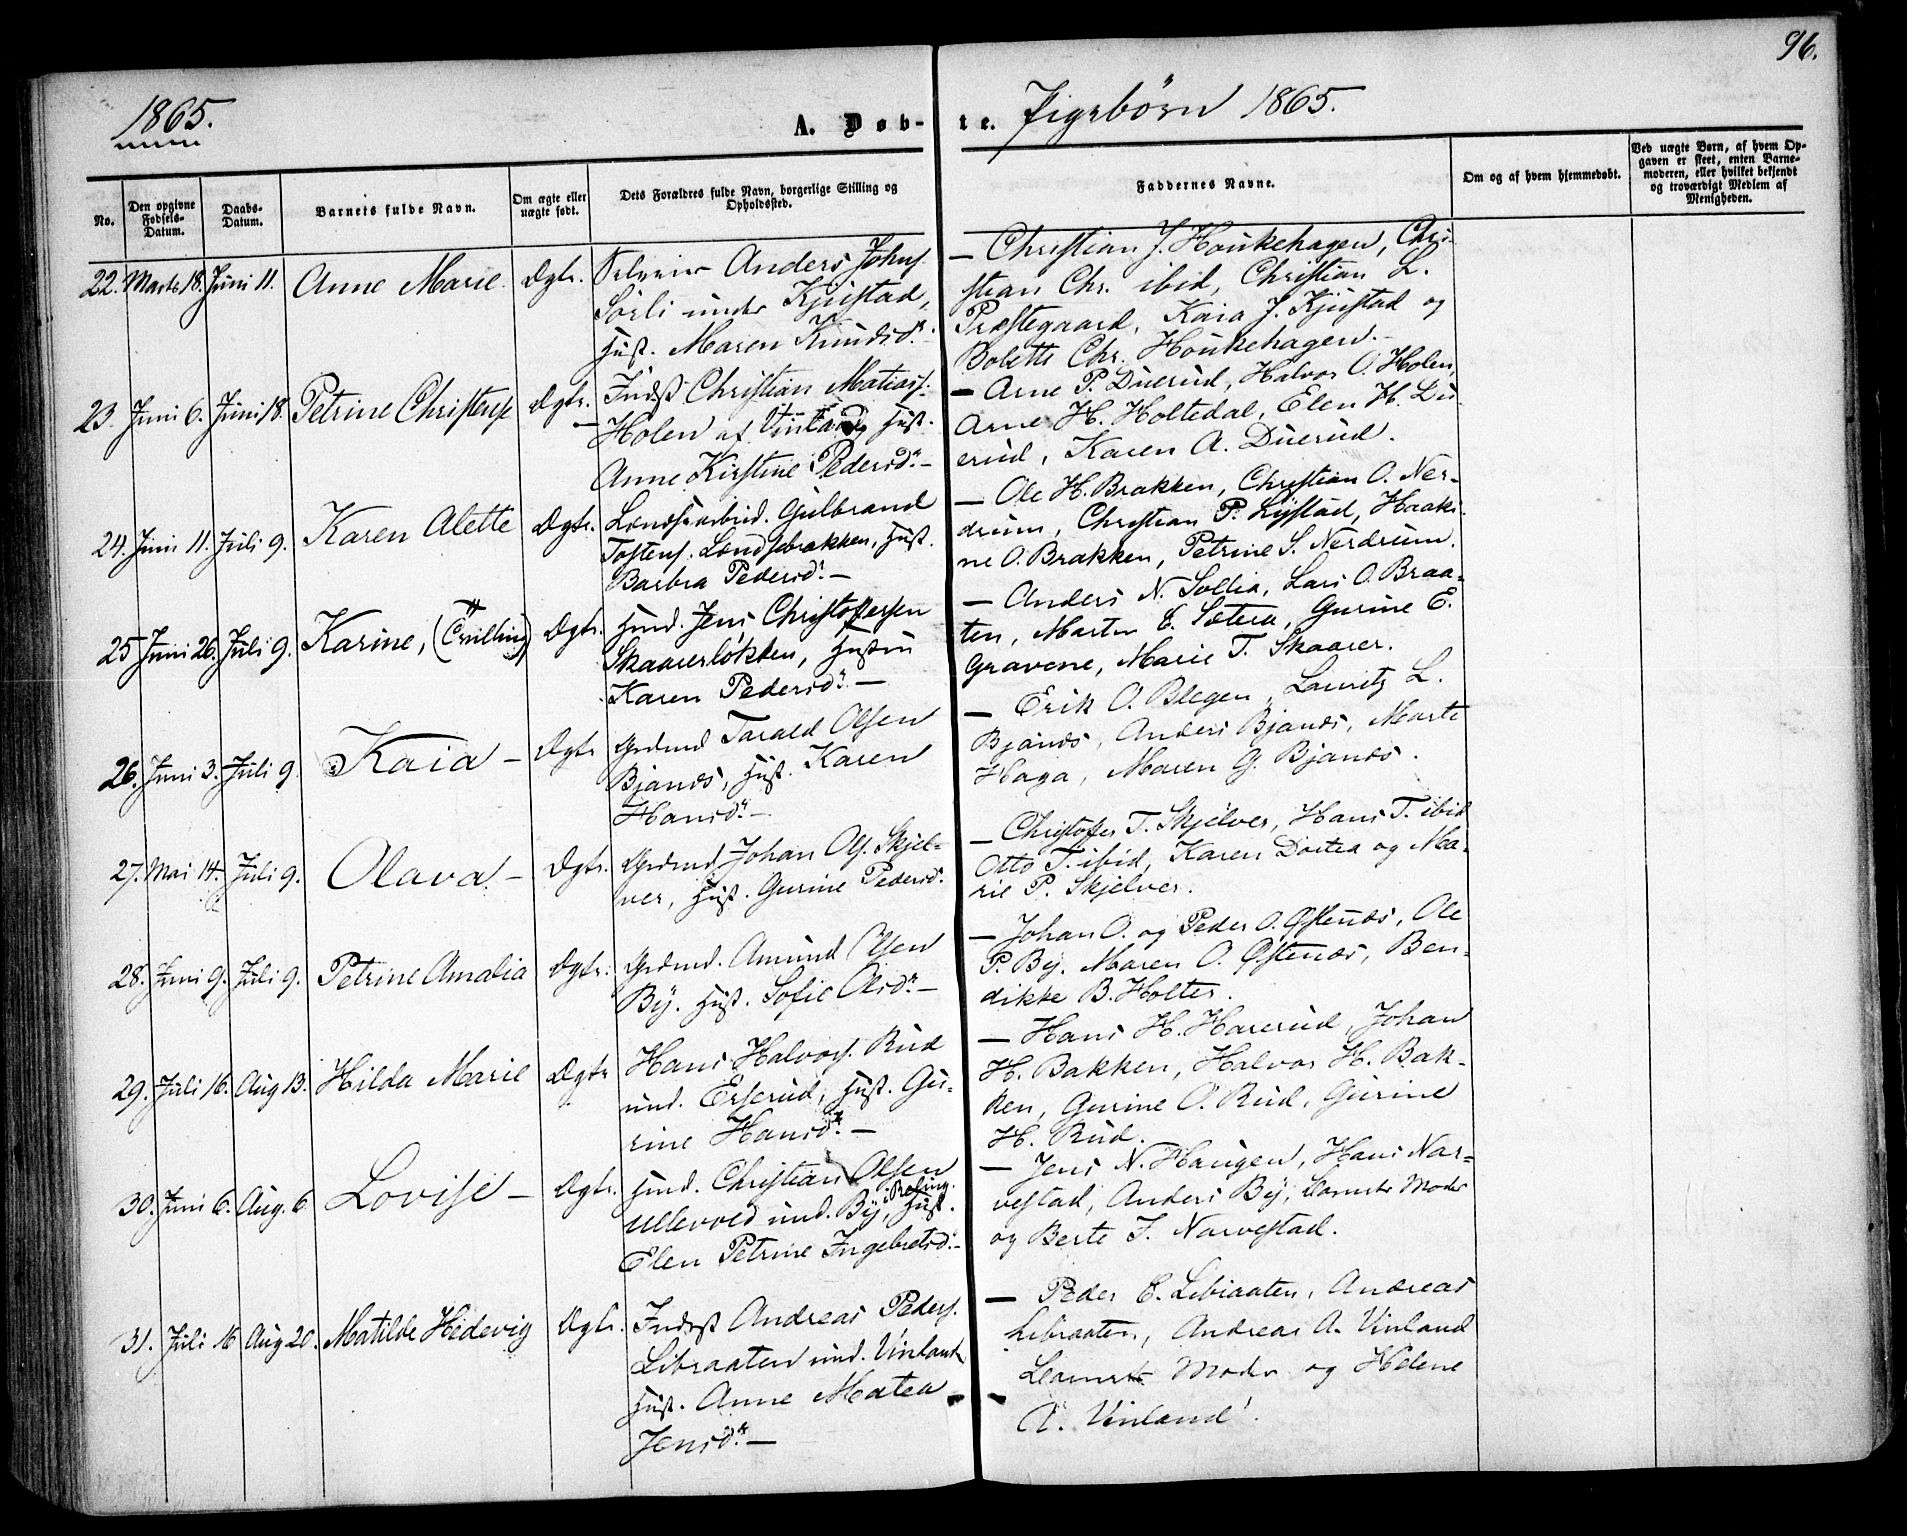 96.
1865.
A. Døb-
te.
Pigebørn 1865.
No.
Den opgivne Fødsels-Datum.
Daabs-Datum.
Barnets fulde Navn.
Om ægte eller uægte født.
Dets Forældres fulde Navn, borgerlige Stilling og Opholdssted.
Faddernes Navne.
Om og af hvem hjemmedøbt.
Ved uægte Børn, af hvem Opgaven er skeet, enten Barnemoderen, eller hvilket bekjendt og troværdigt Medlem af Menigheden.
22. Marts 18. Juni 11. Anne Marie Dgtr.
Anders Johns.
Sørli under Kjustad,
Hust. Maren Knudsdr. —
— Christian J. Houkehagen, Chri-
stian Chr. ibid, Christian L.
Præstegaard, Kaia J. Kjustad og
Bolette Chr. Houkehagen. —
23. Juni 6. Juni 18. Petrine Christense Dgtr. —
Indst Christian Matiass.
Holen af Vinland, Hust.
Anne Kirstine Pedersdr. —
— Arne P. Duerud, Halvor O. Holen,
Arne H. Holtedal, Elen H. Du-
erud, Karen A. Duerud.
24. Juni 11. Juli 9. Karen Alette Dgtr.
Gulbrand
Tostens. Lændsebrakken, Hust.
Barbra Pedersdr. —
— Ole H. Brakken, Christian O. Ner-
drum, Christian P. Lystad, Haaki-
ne O. Brakken, Petrine S. Nerdrum.
25 Juni 26. Juli 9. Karine, (Tvilling) Dgtr.
Husmd. Jens Christoffersen
Skaarerløkken, Hustru
Karen Pedersdr. —
— Anders N. Sollia, Lars O. Braa-
ten, Martin E. Sætera, Gurine E.
Gravene, Marie T. Skaarer.
26. Juni 3. Juli 9. Kaia — Dgtr
Grdmd Tarald Olsen
Bjanes, Hust. Karen
Hansdr. —
— Erik O. Blegen, Lauritz L.
Bjanes, Anders Bjanes, Marte
Haga, Maren G. Bjanes.
27. Mai 14. Juli 9. Olava — Dgtr.
Grdmd. Johan Ols. Skjel-
ver, Hust. Gurine Pedersdr.
— Christoffer T. Skjelver, Hans T. ibid
Otto T. ibid, Karen Dortea og Ma-
rie P. Skjelver.
28. Juni 9. Juli 9. Petrine Amalia Dgtr.
Grdmd. Amund Olsen
By. Hust. Sofie Olsdr. —
— Johan O. og Peder O. Østenæs, Ole
P. By. Maren O. Østenæs, Ben-
dikke B. Holter.
29. Juli 16. Aug 13. Hilda Marie Dgtr
Hans Halvors. Rud
und. Erserud, Hust. Gu-
rine Hansdr. —
— Hans H. Harerud, Johan
H. Bakken, Halvor H. Bak-
ken, Gurine O. Rud, Gurine
H. Rud.
30. Juni 6. Aug. 6. Lovise — Dgtr.
Husmd. Christian Olsen
Ullevold und. By, i Høland, Hust.
Elen Petrine Ingebretsdr. —
— Jens N. Haugen, Hans Nar-
vestad, Anders By, Barnets Moder
og Berte J. Narvestad.
31. Juli 16 Aug 20. Matilde Hedevig Dgtr.
Indst Andreas Peders.
Libraaten und. Vinland
Hust. Anne Matea
Jensdr. —
— Peder E. Libraaten, Andreas
Libraaten, Andreas A. Vinland
Barnets Moder og Helene
A. Vinland.